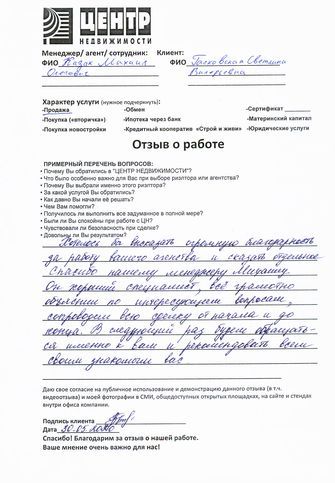 ЦЕНТР
НЕДВИЖИМОСТИ
Менеджер/ агент/ сотрудник: Клиент:
ФИО Казак Михаил ФИО Галковская Светлана
Олегович Валерьевна
Характер услуги (нужное подчеркнуть):
-Продажа -Обмен -Сертификат
-Покупка «вторичка») -Ипотека через банк -Материнский капитал
-Покупка новостройки -Кредитный кооператив «Строй и живи» -Юридические услуги
Отзыв о работе
ПРИМЕРНЫЙ ПЕРЕЧЕНЬ ВОПРОСОВ:
• Почему Вы обратились в "ЦЕНТР НЕДВИЖИМОСТИ"?
• Что было особенно важно для Вас при выборе риэлтора или агентства?
• Почему Вы выбрали именно этого риэлтора?
• За какой услугой Вы обратились?
• Как давно Вы начали её решать?
• Чем Вам помогли?
• Получилось ли выполнить все задуманное в полной мере?
• Были ли Вы спокойны при работе с ЦН?
• Чувствовали ли безопасность при сделке?
• Довольны ли Вы результатом?
Хотелось бы высказать огромную благодарность
за работу вашего агенства и сказать отдельное
Спасибо нашему менеджеру Михаилу.
Он хороший специалист, всё грамотно
объяснил по интересующим вопросам,
сопроводил всю сделку от начала и до
конца. В следующий раз будем обращать-
ся именно к вам и рекомендовать всем
своим знакомым вас
Даю свое согласие на публичное использование и демонстрацию данного отзыва (в т.ч.
видеоотзыва) и моей фотографии в СМИ, общедоступных открытых площадках, на сайте и стендах
внутри офиса компании.
Подпись клиента
Дата 30.05.2020
Спасибо! Благодарим за отзыв о нашей работе.
Ваше мнение очень важно для нас!